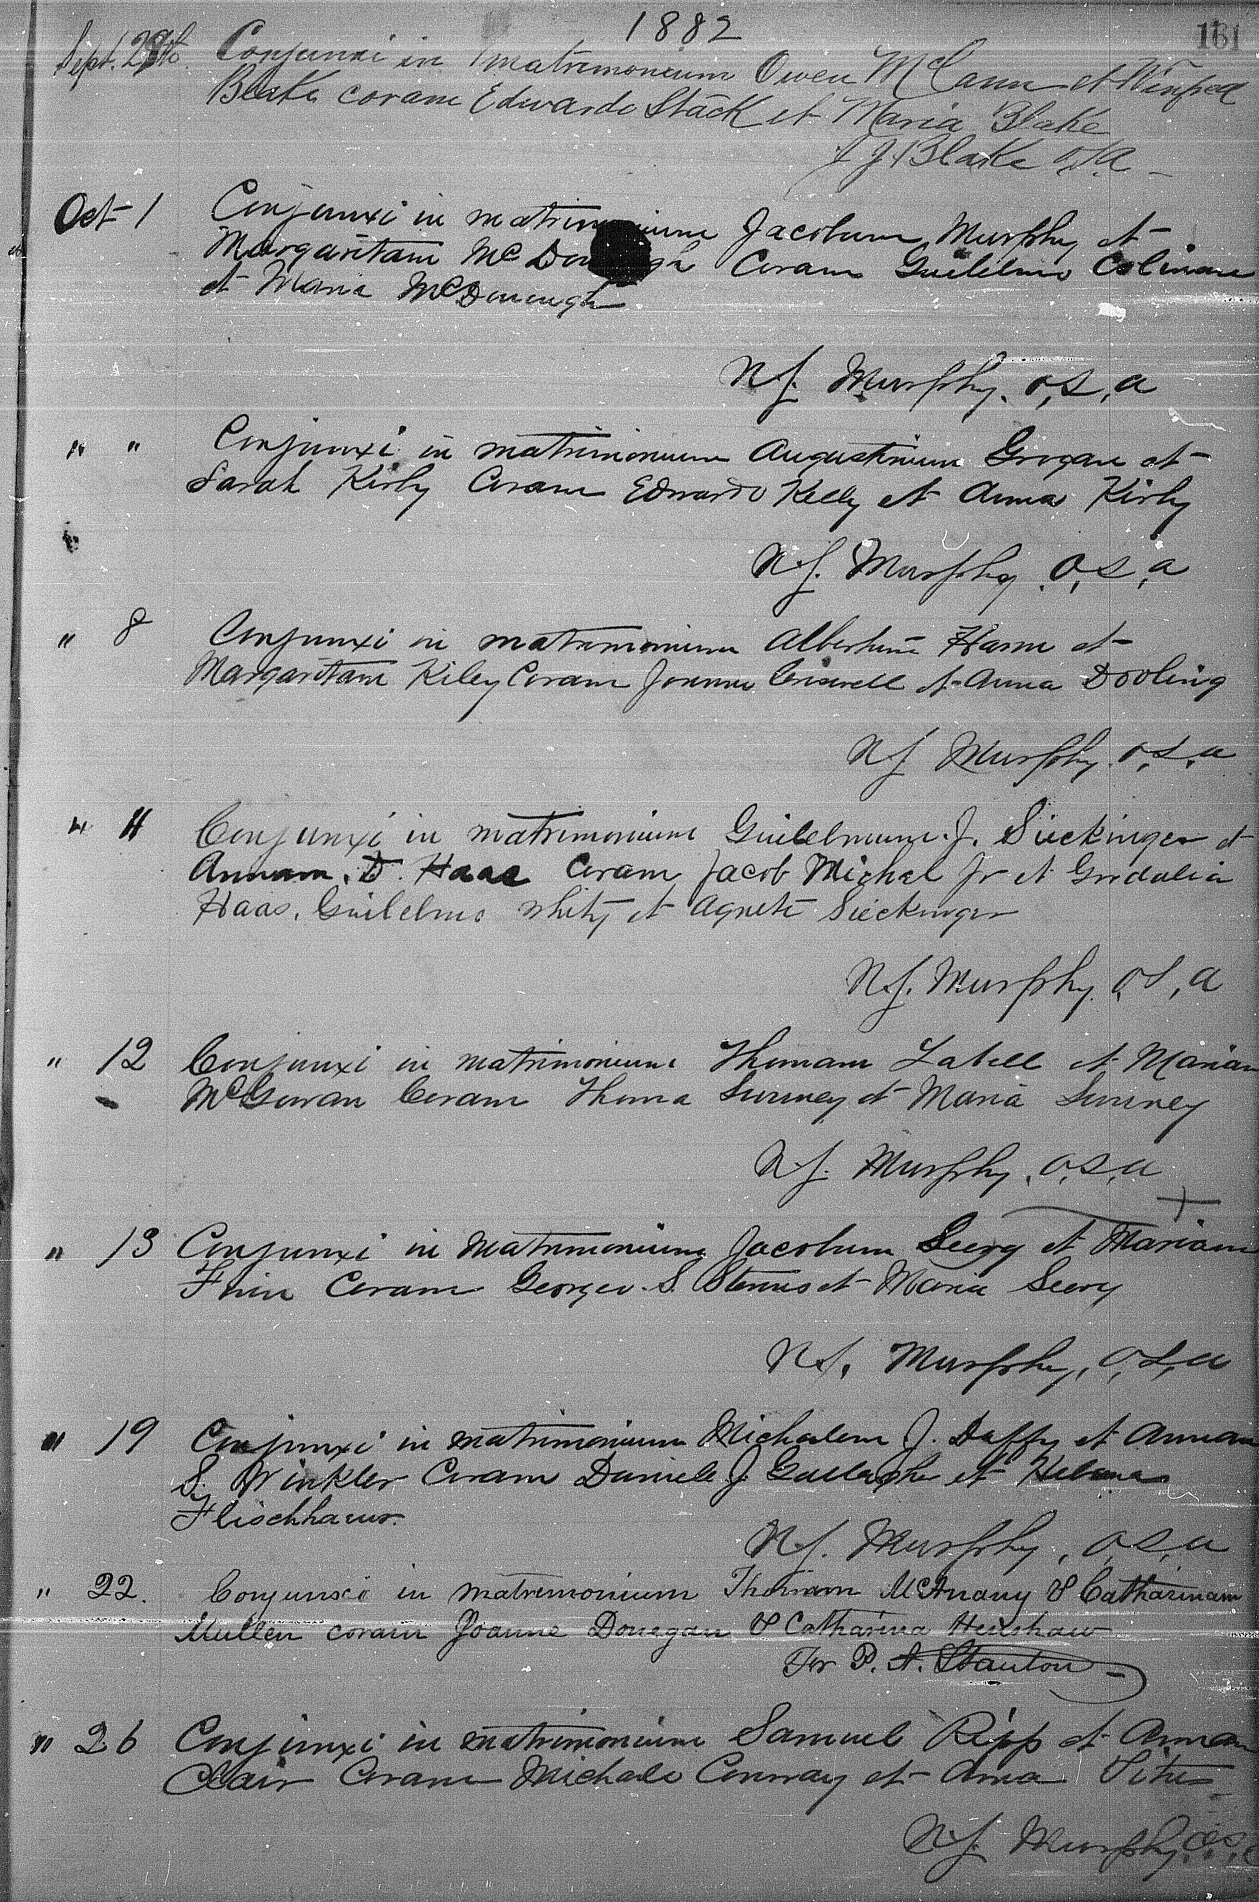 1882
161
Sept. 28th Conjunxi in matrimonium Owen McCann et Winifred
Blake coram Edwardo Stack et Maria Blake
J J Blake o.s.a
Oct 1 Conjunxi in matrimonium Jacobum Murphy et
Margaritam McDonough Coram Guilelmo Colinane
et Maria McDonough
N.J. Murphy. o,s,a
" " Conjunxi in matrimonium Augustinum Grogan et
Sarah Kirby Coram Edwardo Kelly et Anna Kirby
N.J. Murphy O,s,a
" 8 Conjunxi in matrimonium Albertum Hamm et
Margaritam Kiley Coram Joanne Criswell et Anna Dooling
N J Murphy. o,s,a
" 11 Conjunxi in matrimonium Guilelmum J. Sieckinger et
Annam. D. Haas Coram Jacob Michel Jr et
Haas. Guilelmo White et Agnete Sieckinger
N.J. Murphy. o,s,a
" 12 Conjunxi in matrimonium Thomam Labell et Mariam
McGowan Coram Thoma Surney et Maria Surney
N.J. Murphy. o,s,a
" 13 Conjunxi in Matrimonium Jacobum Seery et Mariam
Finn Coram Georgeo S. et Maria Seery
N.J. Murphy, o,s,a
" 19 Conjunxi in matrimonium Michalem J. Duffy et Annam
S. Winkler Coram Daniele J. Gallagher et Helena
Flischhauer.
N.J. Murphy, o,s,a
" 22. Conjunxi in matrimonium Thomam McAnany & Catharinam
Mullen coram Joanne Donegan & Catharina Henshaw
Fr P. A. Stanton
" 26 Conjunxi in matrimonium Samuel Ripp et Annam
Clair Coram Michale Conway et Anna
N.J. Murphy, o,s,